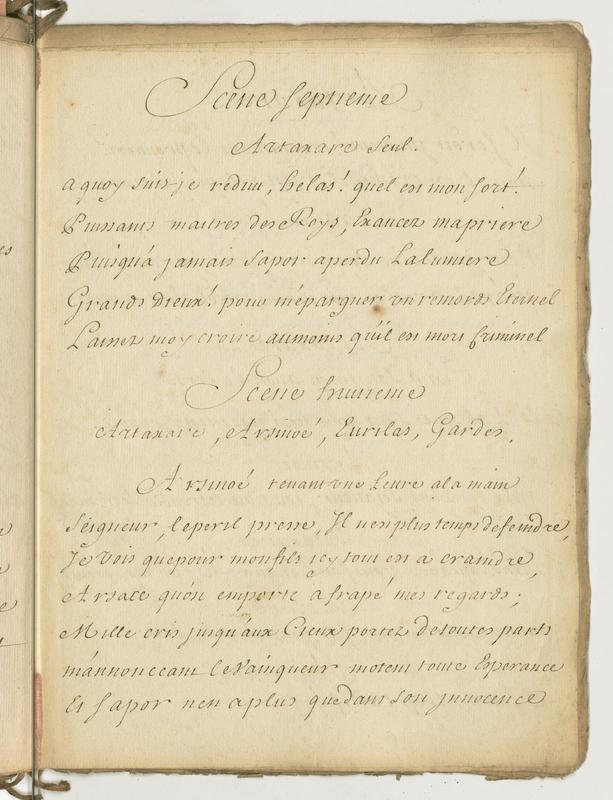 Scene septieme
Artaxare seul.
a quoy suis je reduit, helas! quel est mon sort!
Puissants maitres des Roys, Exaucez ma priere
Puisqu'a jamais Sapor a perdu La lumiere
Grands Dieux! pour m'epargner un remords Eternel
Laissez moy croire au moins qu'il est mort Criminel
Scene huitieme
Artaxare, Arsinoé, Eurilas, Gardes.
Arsinoé tenant une lettre a la main
Seigneur, le peril presse, Il n'est plus temps de feindre,
Je vois que pour mon fils icy tout est a craindre,
Arsace qu'on emporte a frapé mes regards;
Mille cris jusqu'aux Cieux portez de toutes parts
m'annonceant le Vainqueur m'otent toute Esperance
Et Sapor n'en a plus que dans son jnnocence